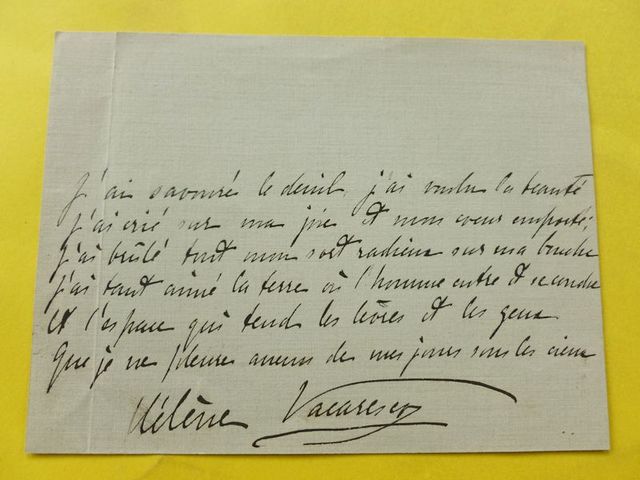 J'ai savouré le deuil, j'ai voulu la beauté
J'ai crié sur ma joie et mon cœur emporté,
J'ai brûlé tout mon sort radieux sur ma bouche
J'ai tant aimé la terre où l'homme entre et se couche
Et l'espace qui tend les lèvres et les yeux
Que je ne pleure aucun de mes jours sous les cieux
Hélène Vacaresco